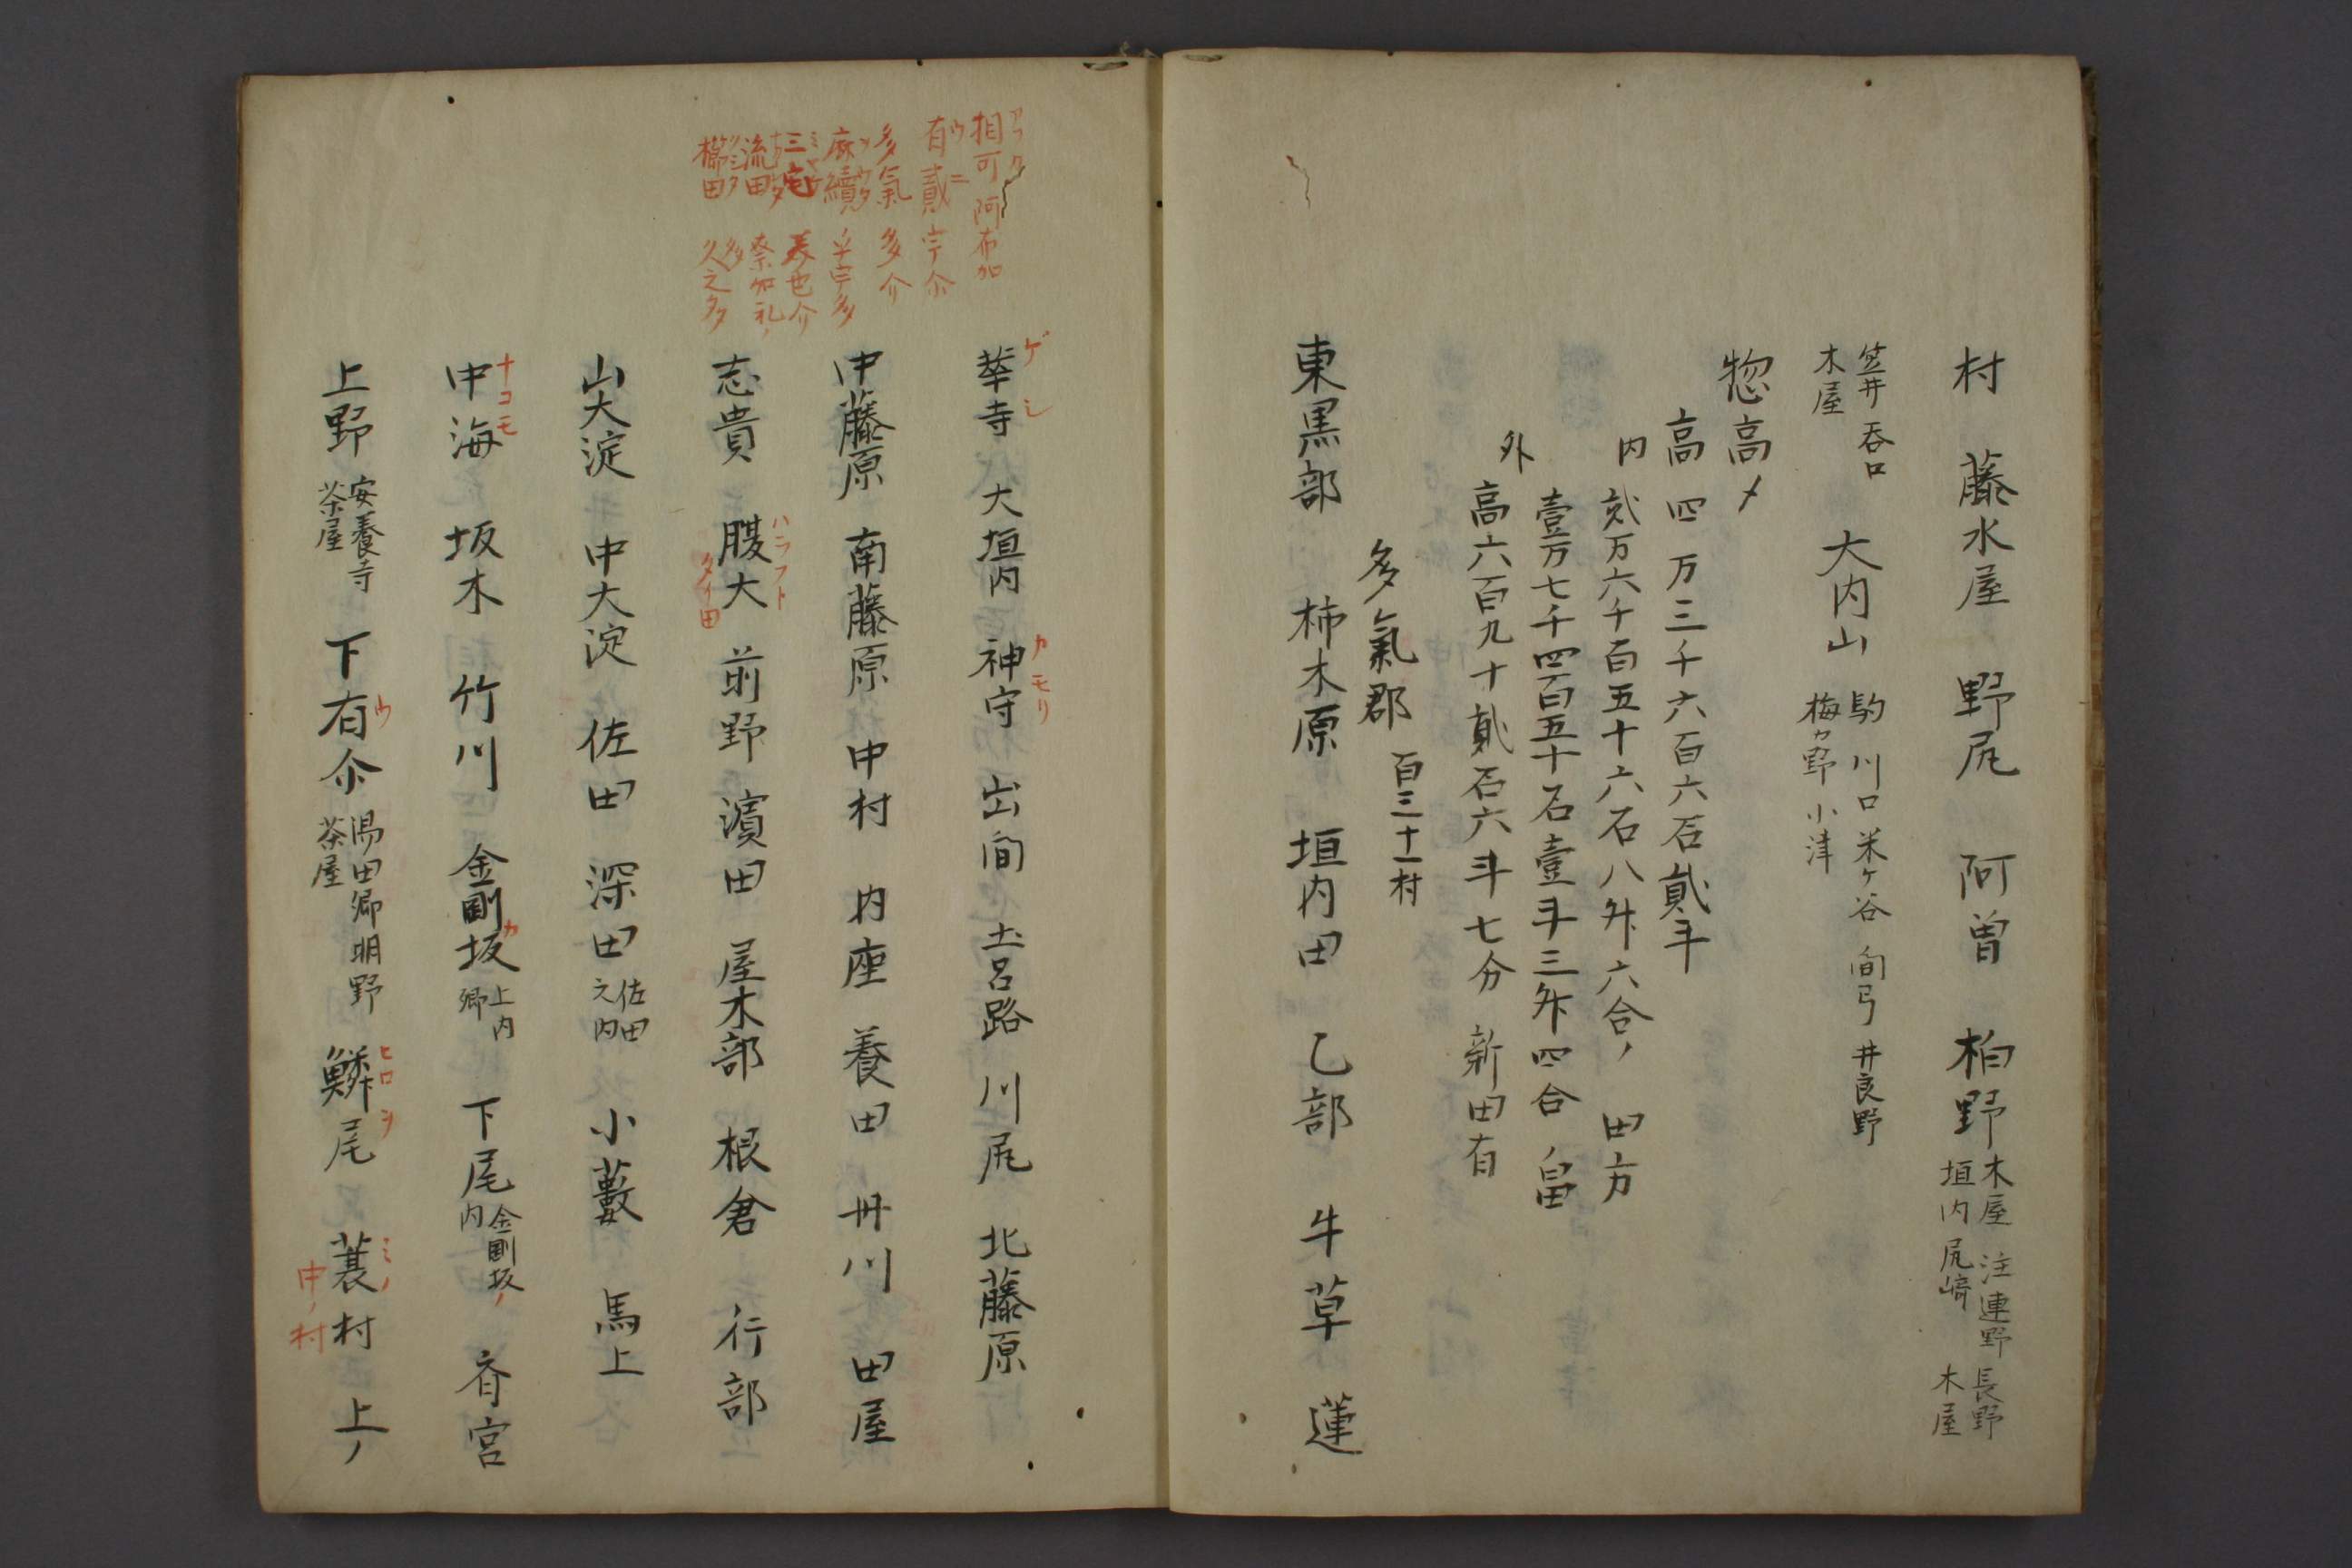 村 藤 水屋 野尻 阿曽 柏野 木屋 注連野 長野
垣内 尻﨑 木屋
笠井 呑口
木屋
大内山 駒 川口 米ケ谷 間弓 井良野
梅カ野 小津
惣高〆
高四万三千六百六石貳斗
内 貮万六千百五十六石八舛六合ノ 田方
壹万七千四百五十石壹斗三舛四合ノ畠
外 高六百九十貳石六斗七分 新田有
多氣郡 百三十一村
東黒部 柿木原 垣内田 乙部 牛草 蓮
相可 阿布加
アフカ
有貳 宇尒
ウニ
多氣 多介
麻續 乎宇多
ヲウタ
三宅 美也介
ミヤケ
流田 奈加礼多
ナカレタ
櫛田 久之多
クシタ
華寺 大垣内 神守 出間 土古路 川尻 北藤原
ゲシ カモリ
中藤原 南藤原 中村 内座 養田 丹川 田屋
志貴 腹太 前野 濱田 屋木部 根倉 行部
ハラフト
タイ田
山大淀 中大淀 佐田 深田 佐田之内 小薮 馬上
中海 坂木 竹川 金剛坂 上内郷 下尾 金剛坂ノ内 斉宮
ナコモ カ
上野 安養寺 茶屋 下有尒 湯田郷 明野 茶屋 鱗尾 蓑村 上ノ
ウ ヒロヲ ミノ
中ノ村